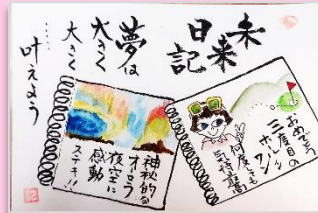 未来
日記
夢は
大きく
大きく
……叶えよう
おめでとう
三度目の
ホールインワン
何度しても
神秘的な
オーロラ
夜空に
感動
ステキ!!